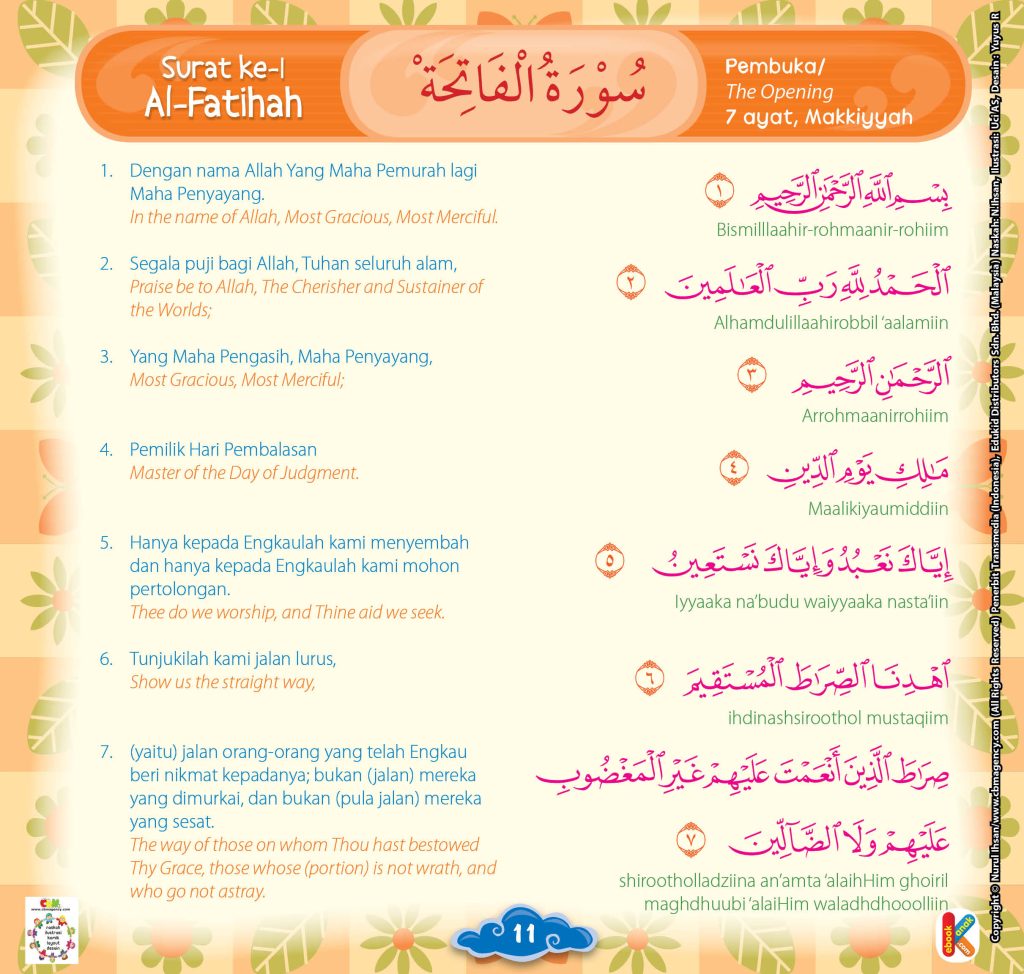 Surat ke-1
Al-Fatihah
سُوْرَةُ الْفَاتِحَةْ
Pembuka/
The Opening
7 ayat, Makkiyyah
1. Dengan nama Allah Yang Maha Pemurah lagi
Maha Penyayang.
In the name of Allah, Most Gracious, Most Merciful.
بِسْمِ ٱللَّهِ ٱلرَّحْمَٰنِ ٱلرَّحِيمِ ١
Bismilllaahir-rohmaanir-rohiim
2. Segala puji bagi Allah, Tuhan seluruh alam,
Praise be to Allah, The Cherisher and Sustainer of
the Worlds;
ٱلْحَمْدُ لِلَّهِ رَبِّ ٱلْعَٰلَمِينَ ٢
Alhamdulillaahirobbil ‘aalamiin
3. Yang Maha Pengasih, Maha Penyayang,
Most Gracious, Most Merciful;
ٱلرَّحْمَٰنِ ٱلرَّحِيمِ ٣
Arrohmaanirrohiim
4. Pemilik Hari Pembalasan
Master of the Day of Judgment.
مَٰلِكِ يَوْمِ ٱلدِّينِ ٤
Maalikiyaumiddiin
5. Hanya kepada Engkaulah kami menyembah
dan hanya kepada Engkaulah kami mohon
pertolongan.
Thee do we worship, and Thine aid we seek.
إِيَّاكَ نَعْبُدُ وَإِيَّاكَ نَسْتَعِينُ ٥
Iyyaaka na’budu waiyyaaka nasta’iin
6. Tunjukilah kami jalan lurus,
Show us the straight way,
ٱهْدِنَا ٱلصِّرَٰطَ ٱلْمُسْتَقِيمَ ٦
ihdinashsiroothol mustaqiim
7. (yaitu) jalan orang-orang yang telah Engkau
beri nikmat kepadanya; bukan (jalan) mereka
yang dimurkai, dan bukan (pula jalan) mereka
yang sesat.
The way of those on whom Thou hast bestowed
Thy Grace, those whose (portion) is not wrath, and
who go not astray.
صِرَٰطَ ٱلَّذِينَ أَنْعَمْتَ عَلَيْهِمْ غَيْرِ ٱلْمَغْضُوبِ
عَلَيْهِمْ وَلَا ٱلضَّآلِّينَ ٧
shirootholladziina an’amta ‘alaihHim ghoiril
maghdhuubi ‘alaiHim waladhdhooolliin
11
CBM
www.cbmagency.com
naskah
ilustrasi
komik
layout
desain
ebook
anak
.com
Copyright © Nurul Ihsan/www.cbmagency.com (All Rights Reserved) Penerbit Transmedia (Indonesia), Edukid Distributors Sdn. Bhd. (Malaysia) Naskah: N. Ihsan, Ilustrasi: Uci AS, Desain : Yuyus R